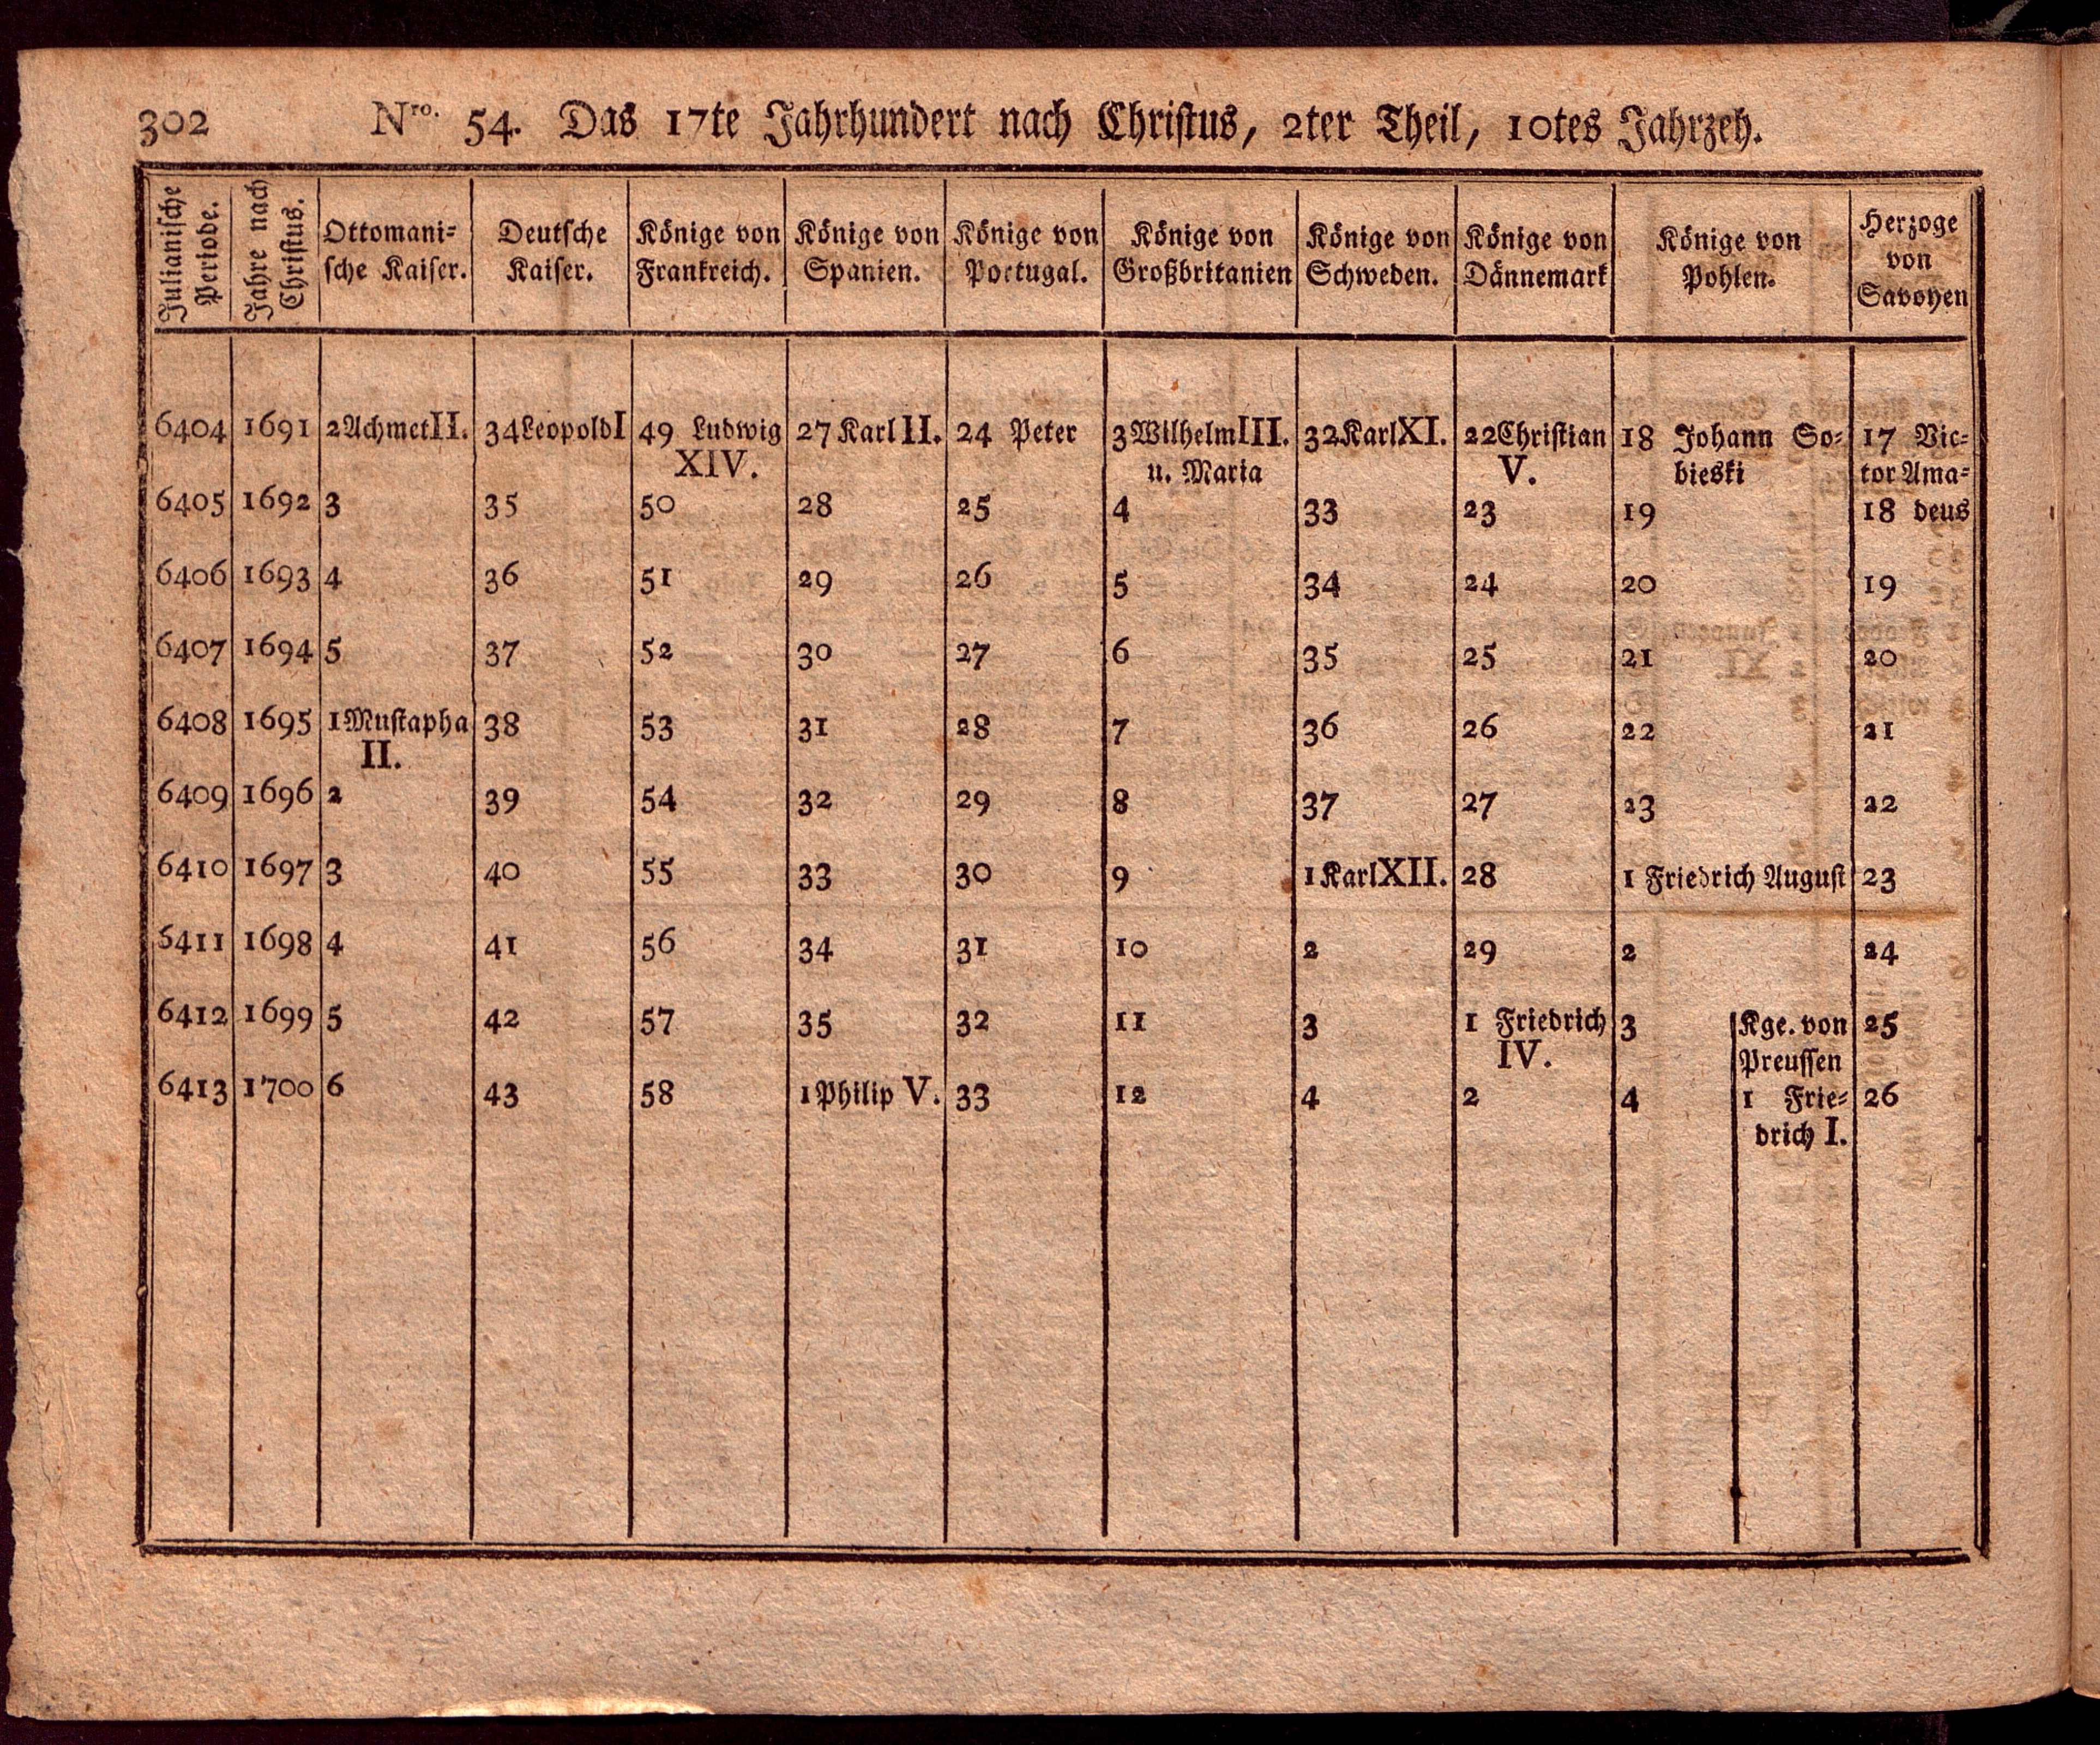 302 Nro. 54. Das 17te Jahrhundert nach Christus, 2ter Theil, 10tes Jahrzeh.
Julianische Periode. | Jahre nach Christus. | Ottomani= sche Kaiser. | Deutsche Kaiser. | Könige von Frankreich. | Könige von Spanien. | Könige von Portugal. | Könige von Großbritanien | Könige von Schweden. | Könige von Dännemark | Könige von Pohlen. | Herzoge von Savoyen
6404 1691 2 Achmet II. 34 Leopold I 49 Ludwig 27 Karl II. 24 Peter 3 Wilhelm III. 32 Karl XI. 22 Christian 18 Johann So= 17 Vic=
XIV. u. Maria V. bieski tor Ama=
6405 1692 3 35 50 28 25 4 33 23 19 18 deus
6406 1693 4 36 51 29 26 5 34 24 20 19
6407 1694 5 37 52 30 27 6 35 25 21 20
6408 1695 1 Mustapha 38 53 31 28 7 36 26 22 21
II.
6409 1696 2 39 54 32 29 8 37 27 23 22
6410 1697 3 40 55 33 30 9 1 Karl XII. 28 1 Friedrich August 23
6411 1698 4 41 56 34 31 10 2 29 2 24
6412 1699 5 42 57 35 32 11 3 1 Friedrich 3 Kge. von 25
IV. Preussen
6413 1700 6 43 58 1 Philip V. 33 12 4 2 4 1 Frie= 26
drich I.